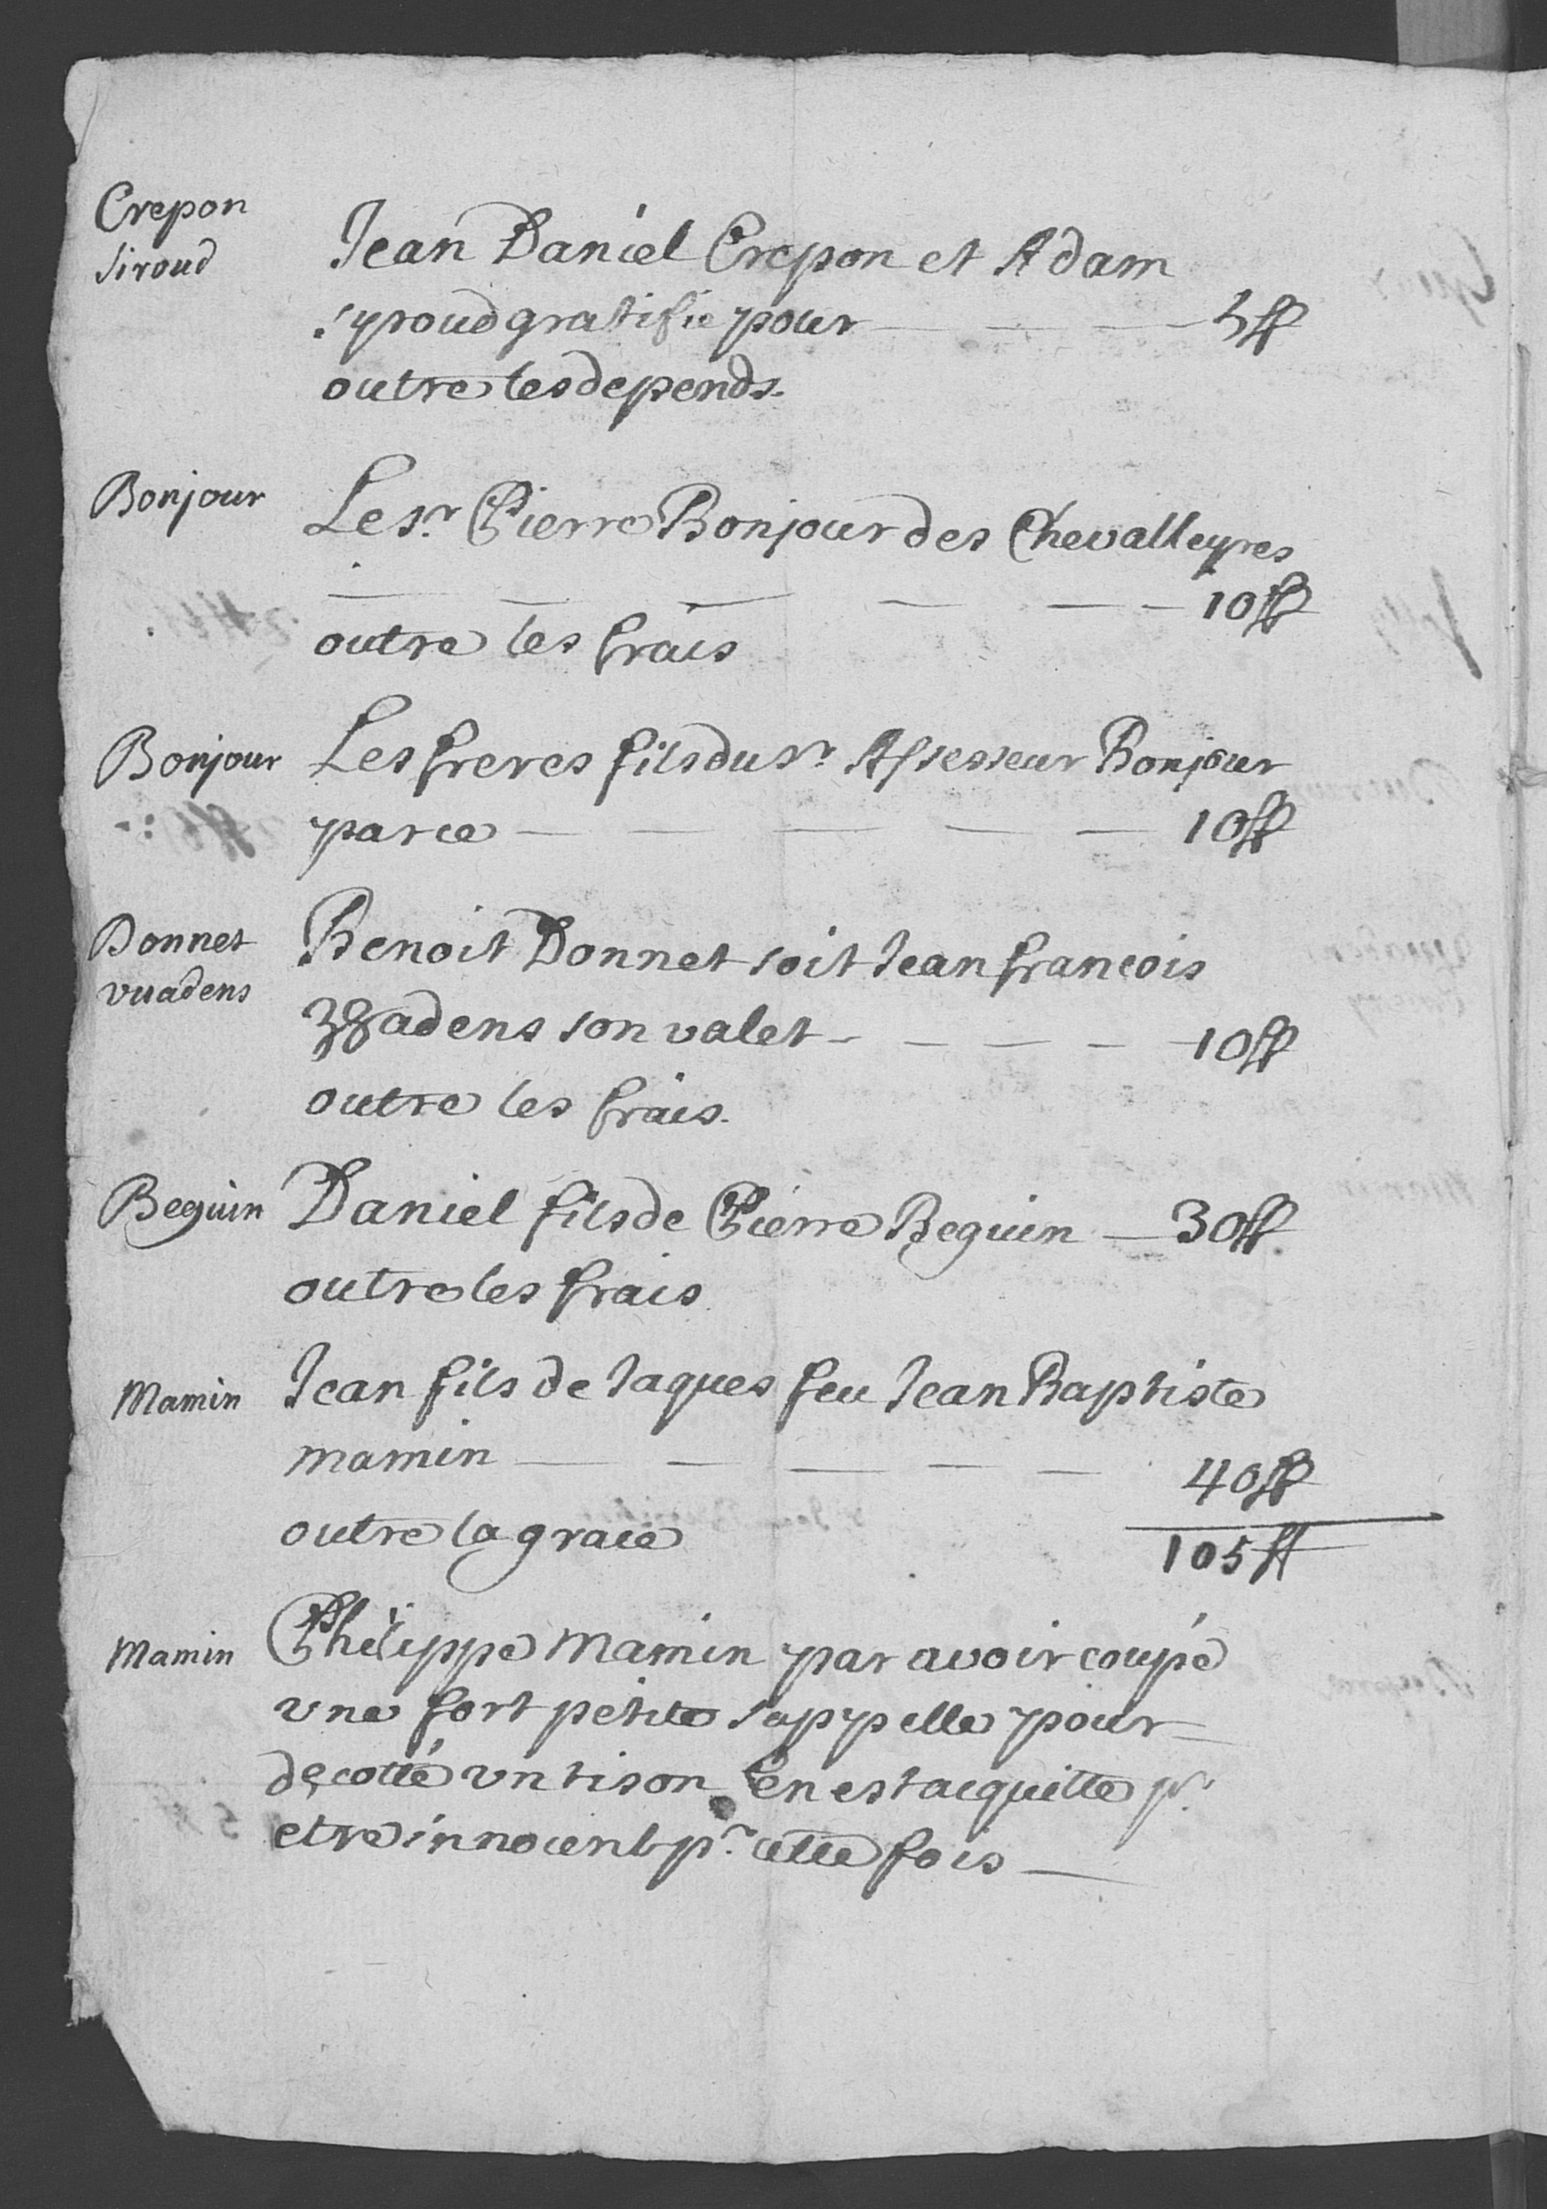 Crepon
Siroud
Jean Daniel Crepon et Adam
Syroud gratifie pour 5 ff
outre les depends.
Bonjour
Le Sr. Pierre Bonjour des Chevalleyres
10 ff
outre les frais
Bonjour
Les freres fils du Sr Assesseur Bonjour
par ce 10 ff
Donnet
vuadens
Benoit Donnet soit Jean francois
Wadens son valet 10 ff
outre les frais.
Beguin
Daniel fils de Pierre Beguin 30 ff
outre les frais
Mamin
Jean fils de Jaques feu Jean Baptiste
Mamin 40 ff
outre la grace
105 ff
Mamin
Philippe Mamin par avoir coupé
une fort petite sappelle pour
decotté un tison en est acquitté pr
etre innocent pr. cette fois